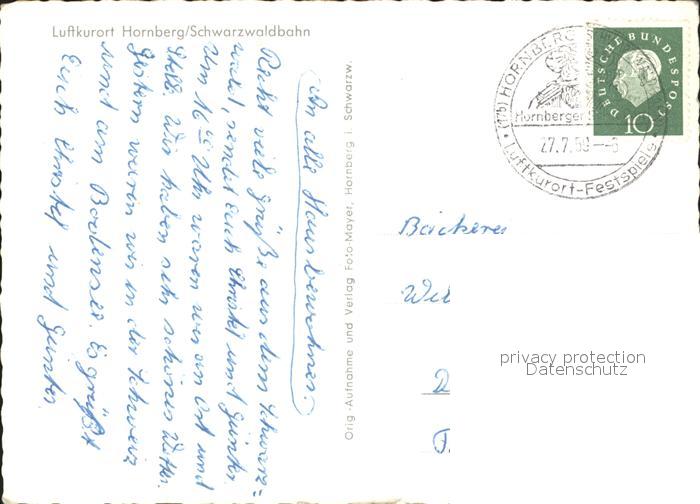 Luftkurort Hornberg/Schwarzwaldbahn
(An alle Hausbewohner.)
Recht viele Grüße aus dem Schwarz=
wald, sendet euch Christel und Günter.
Um 16 00 Uhr waren wir an Ort und
Stelle. Wir haben sehr schönes Wetter.
Gestern waren wir in der Schweiz
und am Bodensee. Es grüßt
Euch Christel und Günter.
Orig.-Aufnahme und Verlag Foto-Mayer, Hornberg i Schwarzw.
(17b) HORNBERG
Hornberger
27.7.59
Luftkurort-Festspiele
DEUTSCHE BUNDESPOST
10
Bäckerei
privacy protection
Datenschutz